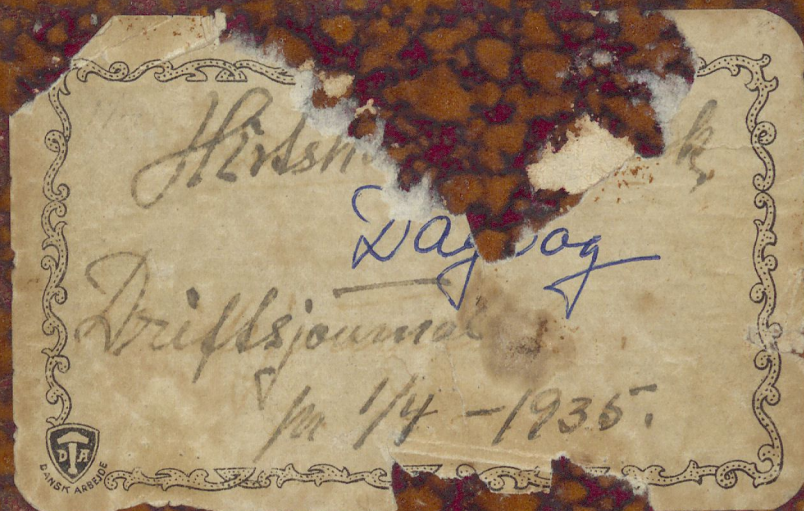 Dagbog
Driftsjournal
fra 1/4 - 1935.
DA
DANSK ARBEJDE